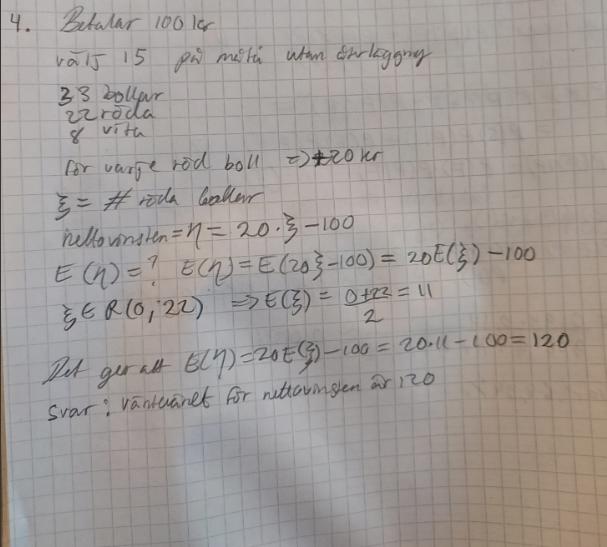 4. Betalar 100 kr
välj 15 på måfå utan återläggning
33 bollar
22 röda
8 vita
för varje röd boll => +20 kr
ξ = # röda bollar
nettovinsten = η = 20·ξ - 100
E(η) = ? E(η) = E(20ξ - 100) = 20E(ξ) - 100
ξ ∈ R(0, 22) => E(ξ) = (0+22)/2 = 11
Det ger att E(η) = 20E(ξ) - 100 = 20·11 - 100 = 120
Svar: väntevärdet för nettovinsten är 120